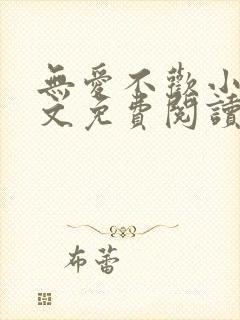 無愛不歡小
文免費閱讀
布蕾